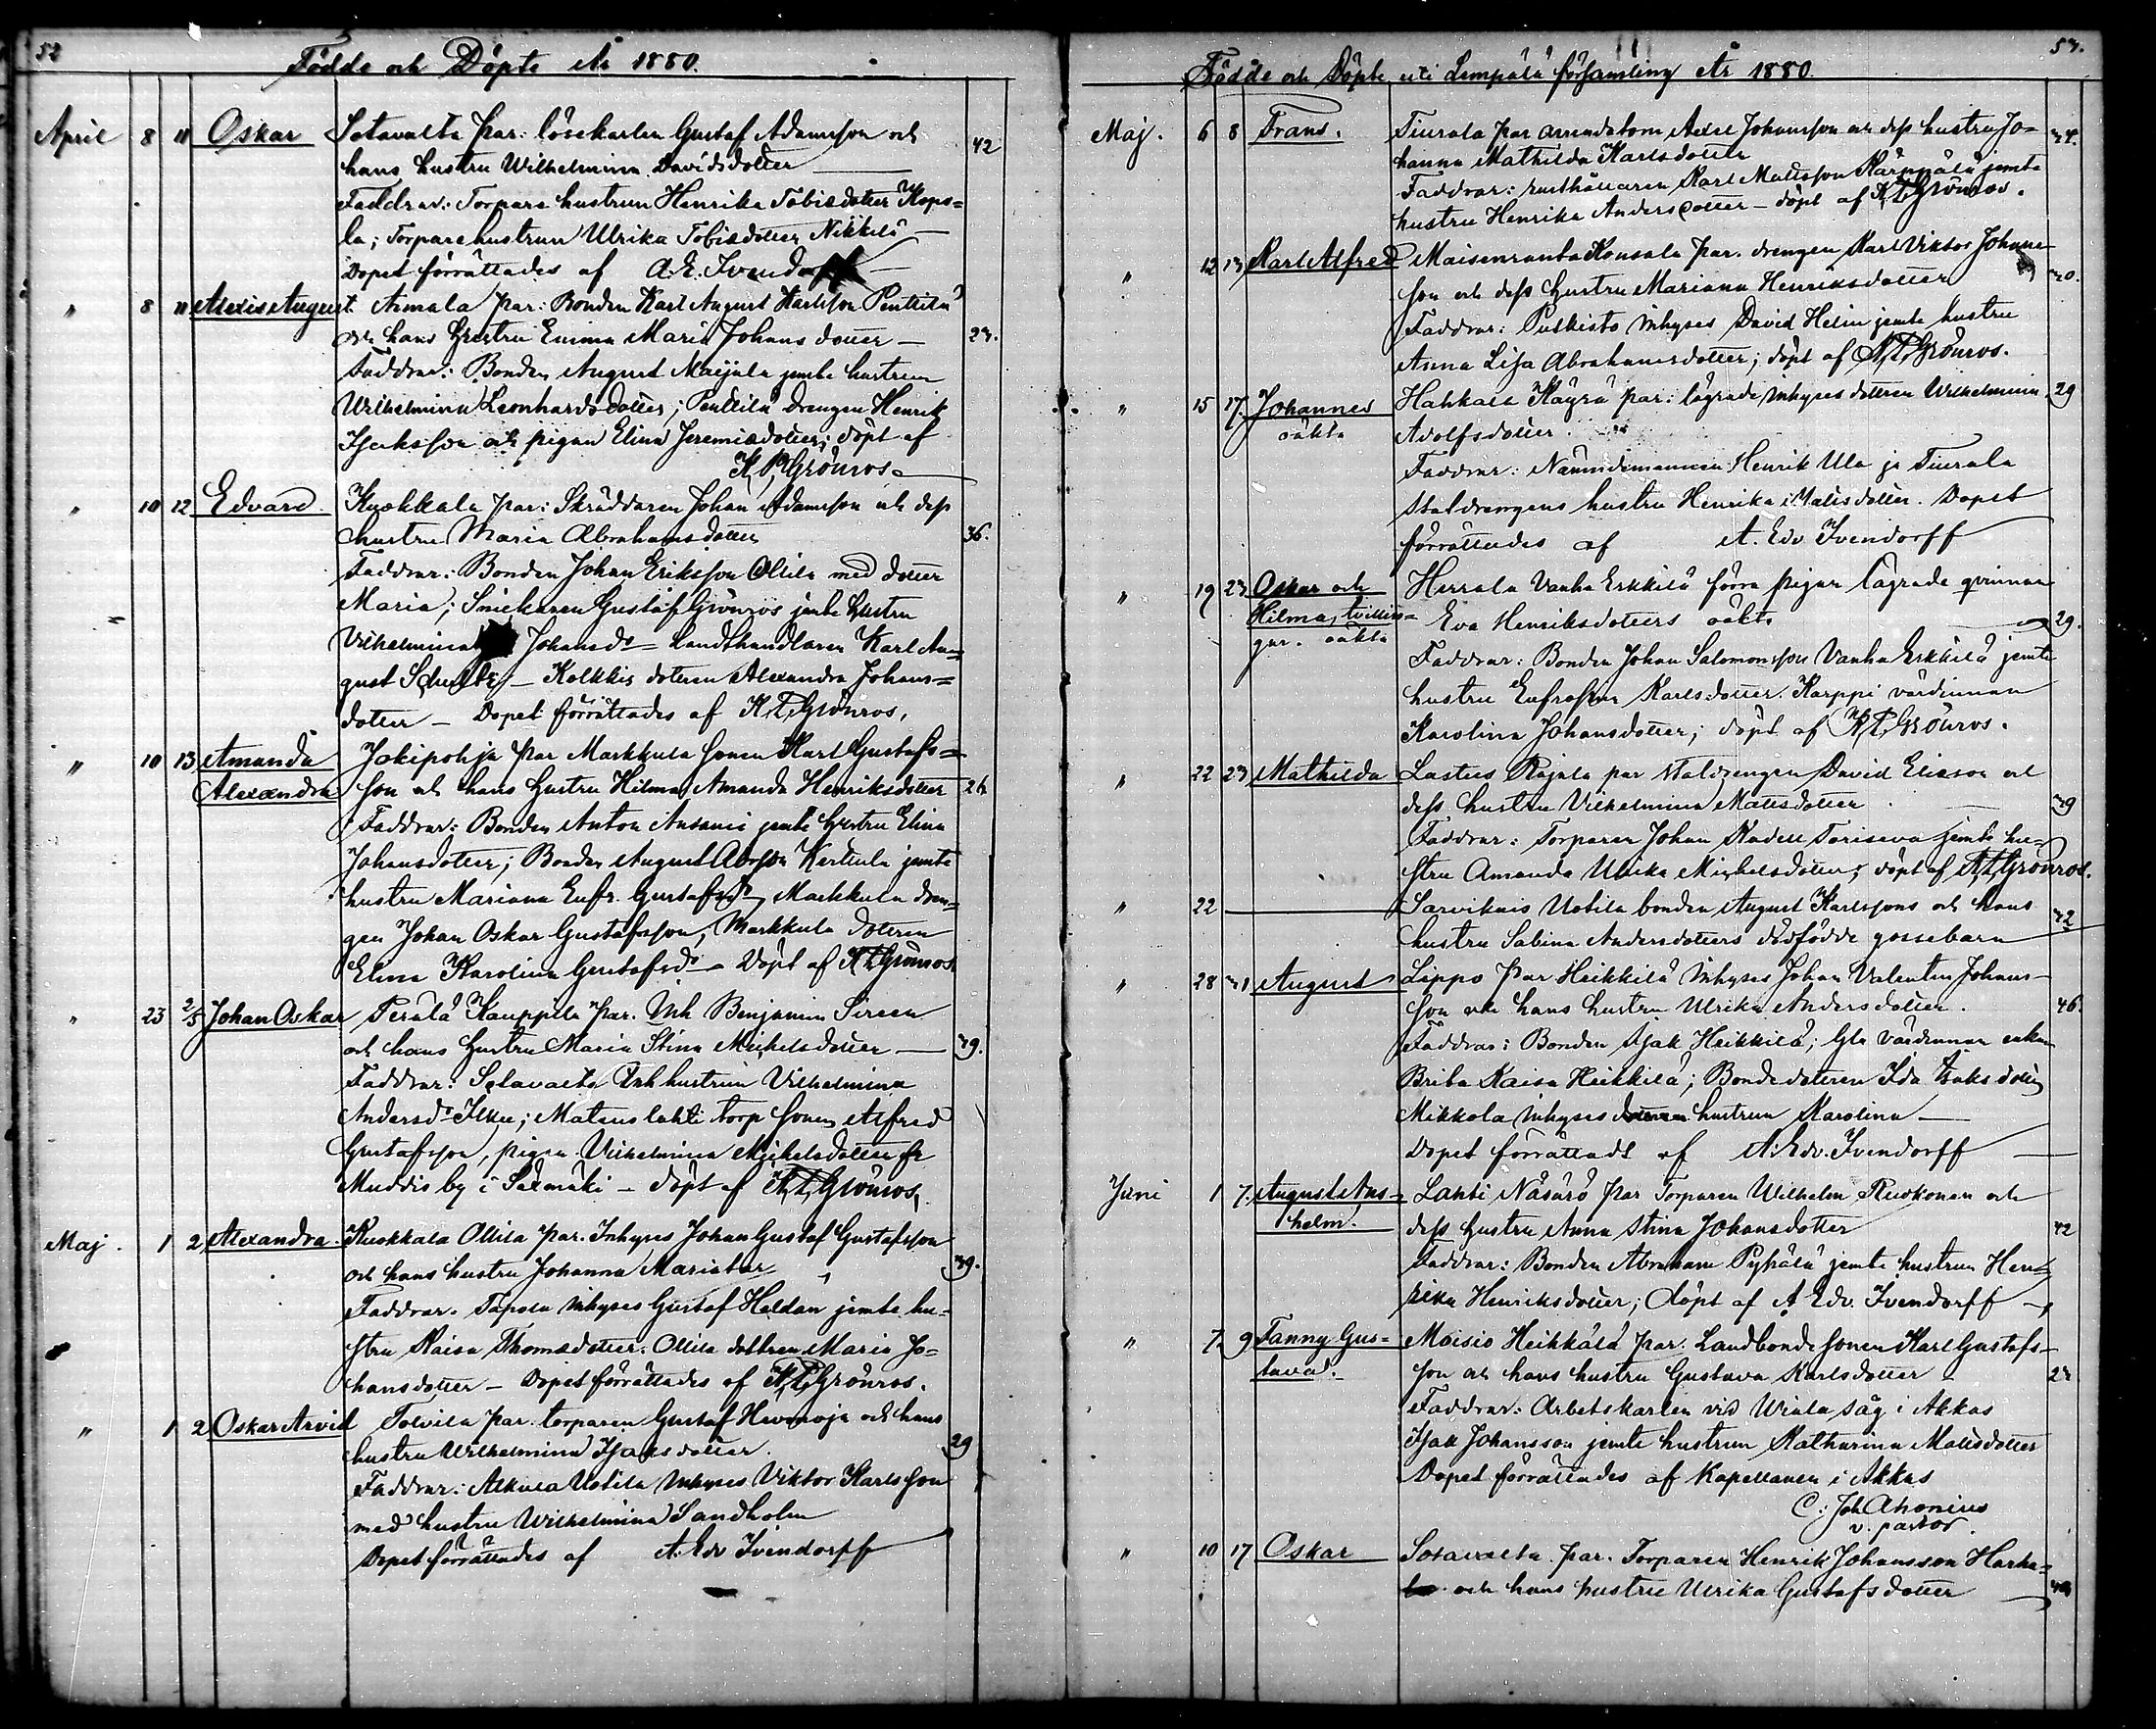 52
Födde och Döpte År 1880.
April 8 11 Oskar Sotavalta par: löskarlen Gustaf Adamsson och
hans hustru Wilhelmina Davidsdotter 42
Faddrar: Torpare hustrun Henrika Tobiedotter
la; Torparehustrun Ulrika Tobiedotter Nikkilä
Dopet förrättades af A. E. Ivendorff
" 8 11 Alexis August. par: Bonden Karl August Karlsson Penttilä
och hans hustru Emma Maria Johansdotter 23.
Faddrar: Bonden August Maijala jemte hustrun
Wilhelmina Leonhardsdotter; Penttilä drengen Henrik
Isaksson och pigan Elina Jeremiedotter; döpt af
K. P. Grönros.
" 10 12 Edvard. Kuokkala par: Skräddaren Johan Adamsson och dess
hustru Maria Abrahamsdotter 36.
Faddrar: Bonden Johan Eriksson Ollila med dotter
Maria; Snickaren Gustaf Grönroos jemte hustru
Vilhelmina Johansdr Landthandlaren Karl Au=
gust Schultz Kolkkis dottern Alexandra Johans=
dotter Dopet förrättades af K. P. Grönros.
" 10 13 Amanda Jokipohja par Markkula sonen Karl Gustafs=
Alexandra son och hans hustru Hilma Amanda Henriksdotter 26
Faddrar: Bonden Anton jemte hustru Elina
Johansdotter; Bonden August Kerttula jemte
hustru Mariana Eufr. Gustafsdr, Markkula dren=
gen Johan Oskar Gustafsson, Markkula dottern
Elina Karolina Gustafsdr Döpt af K. P. Grönros
" 23 2/5 Johan Oskar Perälä Kauppila par. Inh Benjamin Siren
och hans hustru Maria Stina Mickelsdotter 39.
Faddrar: Sotavalta Inh hustrun Vilhelmina
Andersdr; lahti torp sonen Alfred
Gustafsson, pigan Vilhelmina Mickelsdotter fr
by i Saxmäki döpt af K. P. Grönros.
Maj. 1 2 Alexandra. Kuokkala Ollila par. Inhyses Johan Gustaf Gustafsson
och hans hustru Johanna 39.
Faddrar. Tapola Inhyses Gustaf jemte hu=
stru Kaisa Thomasdotter. Ollila dottren Maria Jo=
hansdotter Dopet förrättades af K. P. Grönros.
" 1 2 Oskar Arvid Tolvila par. torparen Gustaf och hans
hustru Wilhelmina Isaksdotter. 29
Faddrar: Uotila Inhyses Viktor Karlsson
med hustru Wilhelmina Sandholm
Dopet förrättades af A. Edv Ivendorff
53.
Födde och Döpte uti Lempäälä församling År 1880.
Maj. 6 8 Frans. par arrendatorn Axel Johansson och dess hustru Jo=
hanna Mathilda Karlsdotter
Faddrar: rusthållaren Karl Mattsson jemte
hustru Henrika Andersdotter döpt af K. P. Grönros.
" 12 13 Karl Alfred Maisenranta Konsala par. drengen Karl Viktor Johans
son och dess hustru Mariana Henriksdotter 30.
Faddrar: Inhyses David Helin jemte hustru
Anna Lisa Abrahamsdotter; döpt af K. P. Grönros.
" 15 17. Johannes Hahkala Käyrä par: lägrade Inhyses dottren Wilhelmina 29
oäkta Adolfsdotter
Faddrar: Nämndemannen Henrik Ula
staldrengens hustru Henrika Mattsdotter. Dopet
förrättades af A. Edv Ivendorff
" 19 23 Oskar och Herrala Vanha Erkkilä förra pigan lägrade qvinnan
Hilma, tvillin= Eva Henriksdotters oäkta 29.
gar. oäkta Faddrar: Bonden Johan Salomonsson Vanha Erkkilä jemte
hustru Eufrosina Karlsdotter. Karppi värdinnan
Karolina Johansdotter; döpt af K. P. Grönros.
" 22 23 Mathilda Lastus Rajala par staldrengen David Eliason och
dess hustru Vilhelmina Mattsdotter 39
Faddrar: Torparen Johan Toriseva jemte hu=
stru Amanda Ulrika Michelsdotter; döpt af K. P. Grönros.
" 22 Uotila bonden August Karlssons och hans 42
hustru Sabina Andersdotters dödfödde gossebarn
" 28 31 August Lippo par Heikkilä Inhyses Johan Valentin Johans=
son och hans hustru Ulrika Andersdotter. 46.
Faddrar: Bonden Isak Heikkilä; Gla värdinnan enkan
Brita Kaisa Heikkilä; Bondedottren Ida Isaksdotter
Mikkola Inhyses hustrun Karolina
Dopet förrättadt af A. Edv. Ivendorff
Juni 1 7. August Ans= Lahti Näsärö par Torparen Wilhelm och
helm. dess hustru Anna Stina Johansdotter 42
Faddrar: Bonden Abraham Pyhälä jemte hustrun Hen=
rika Henriksdotter; döpt af A Edv. Ivendorff
" 7. 9 Fanny Gus= Moisio Heikkälä par. Landbonde sonen Karl Gustafs=
tava. son och hans hustru Gustava Karlsdotter 23
Faddrar: Arbetskarlen vid Wiala såg i Akkas
Isak Johansson jemte hustrun Katharina Mattsdotter
Dopet förrättades af Kapellanen i Akkas
C: Joh Ahonius
v. pastor.
" 10 17 Oskar Sotavalta par. Torparen Henrik Johansson
och hans hustru Ulrika Gustafsdotter